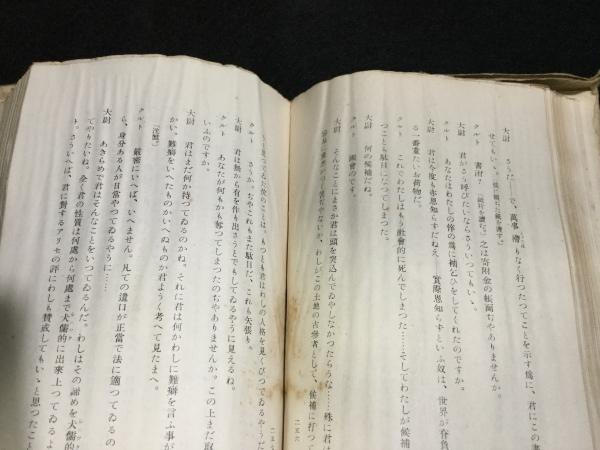 大尉　さうだ……で、萬事滯りなく行つたつてことを示す爲に、君にこの書
せてもいゝ。(彼に開いた紙を渡す。)
クルト　書附？(紙片を讀む。)之は寄附金の帳面ぢやありませんか。
大尉　君がさう呼びたいならさういつてもいゝ。
クルト　あなたはわたしの悴の爲に補乞ひをしてくれたのですか。
大尉　君は今度も亦恩知らずだねえ。　實際恩知らずといふ奴は、世界が脊負
る一番重たいお荷物だ。
クルト　これでわたしはもう社會的に死んでしまつた……そしてわたしが候補
つことも駄目になつてしまつた。
大尉　何の候補だね。
クルト　國會のです。
大尉　そんなことにまさか君は頭を突込んでゐやしなかつたらうな……殊に君は
わしがこの土地の古參者として、候補に打つて
二五六
もつとも君はわしの人格を見くびつてゐるやうだ
クルト　さうか、ぢやこれもまた駄目だ、これも矢張り。
大尉　君は無から有を作り出さうとでもしてゐるやうに見えるね。
クルト　あなたが何もかも奪つてしまつたのぢやありませんか。この上まだ取
いふのですか。
大尉　君はまだ何か持つてゐるのかね。それに君は何かわしに難癖を言ふ事が
かい。難癖をいへたものかいへぬものか君ようく考へて見たまへ。
(沈默。)
クルト　嚴密にいへば、いへません。凡ての遣口が正當で法に適つてゐるの
ら、身分ある人が日常やつてゐるやうに……
大尉　あきらめで君はそんなことをいつてゐるんだ。わしはその諦めを犬儒的
てやりたいね。全く君の性質は何處から何處まで犬儒的に出來上つてゐるよ
ト。さういへば、君に對するアリセの評にわしも賛成してもいゝと思つたこと
二五七